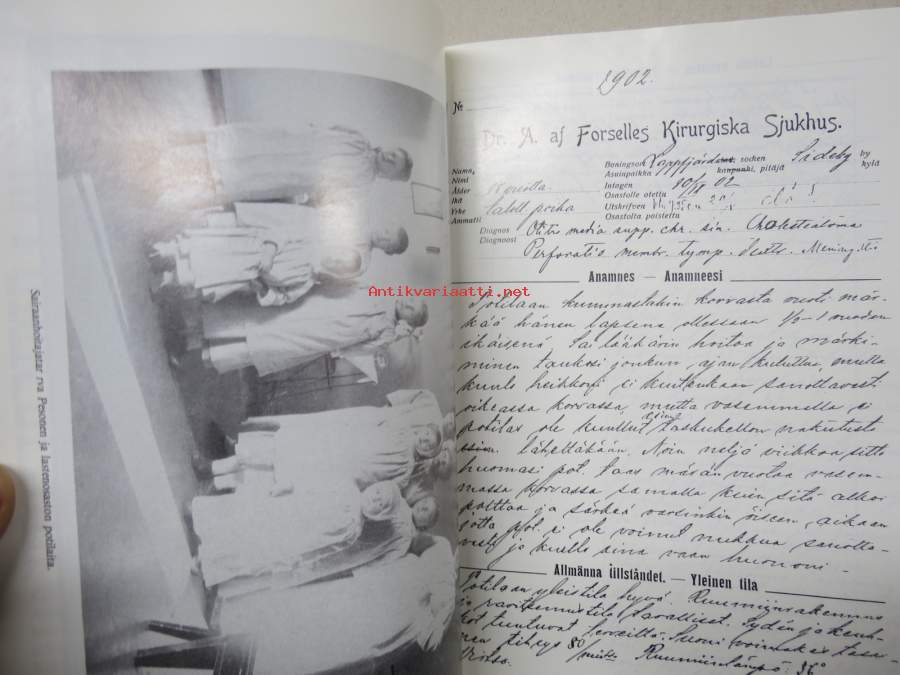 Sairaanhoitajatar rva Pesonen ja lastenosaston potilaita.
Antikvariaatti.net
1902.
№
Dr. A. af Forselles Kirurgiska Sjukhus.
Namn, Nimi
Ålder Ikä
Yrke Ammatti taloll. poika
Boningsort Asuinpaikka Lappfjärd socken kaupunki, pitäjä Sideby by kylä
Intagen Osastolle otettu
Utskrifven Osastolta poistettu
Diagnos Diagnoosi Otitis media supp. chr. sin. Cholesteatoma
Perforatio membr. tymp. dextr. Meningitis
Anamnes — Anamneesi
Potilaan kummastakin korvasta vuoti mär-
kää hänen lapsena ollessaan ½-1 vuoden
ikäisenä. Sai lääkärin hoitoa ja märki-
minen taukosi jonkun ajan kuluttua, mutta
kuulo heikkoni ei kuitenkaan sanottavasti
oikeassa korvassa, mutta vasemmalla ei
potilas ole kuullut taskukellon nakutusta
läheltäkään. Noin neljä viikkoa sitte
huomasi pot. taas märän vuotaa vasem-
massa korvassa samalla kuin sitä alkoi
polttaa ja särkeä varsinkin öiseen aikaan
jotta pot. ei ole voinut nukkua sanotta-
vasti ja kuulo aina vaan huononi-
Allmänna tillståndet. — Yleinen tila
Potilaan yleistila hyvä. Ruumiinrakennus
ja ravitsemustila tavalliset. Sydän ja keuh-
kot tuntuvat terveiltä. Suoni voimakas tasa-
nen tiheys 80 Ruumiinlämpö 36°